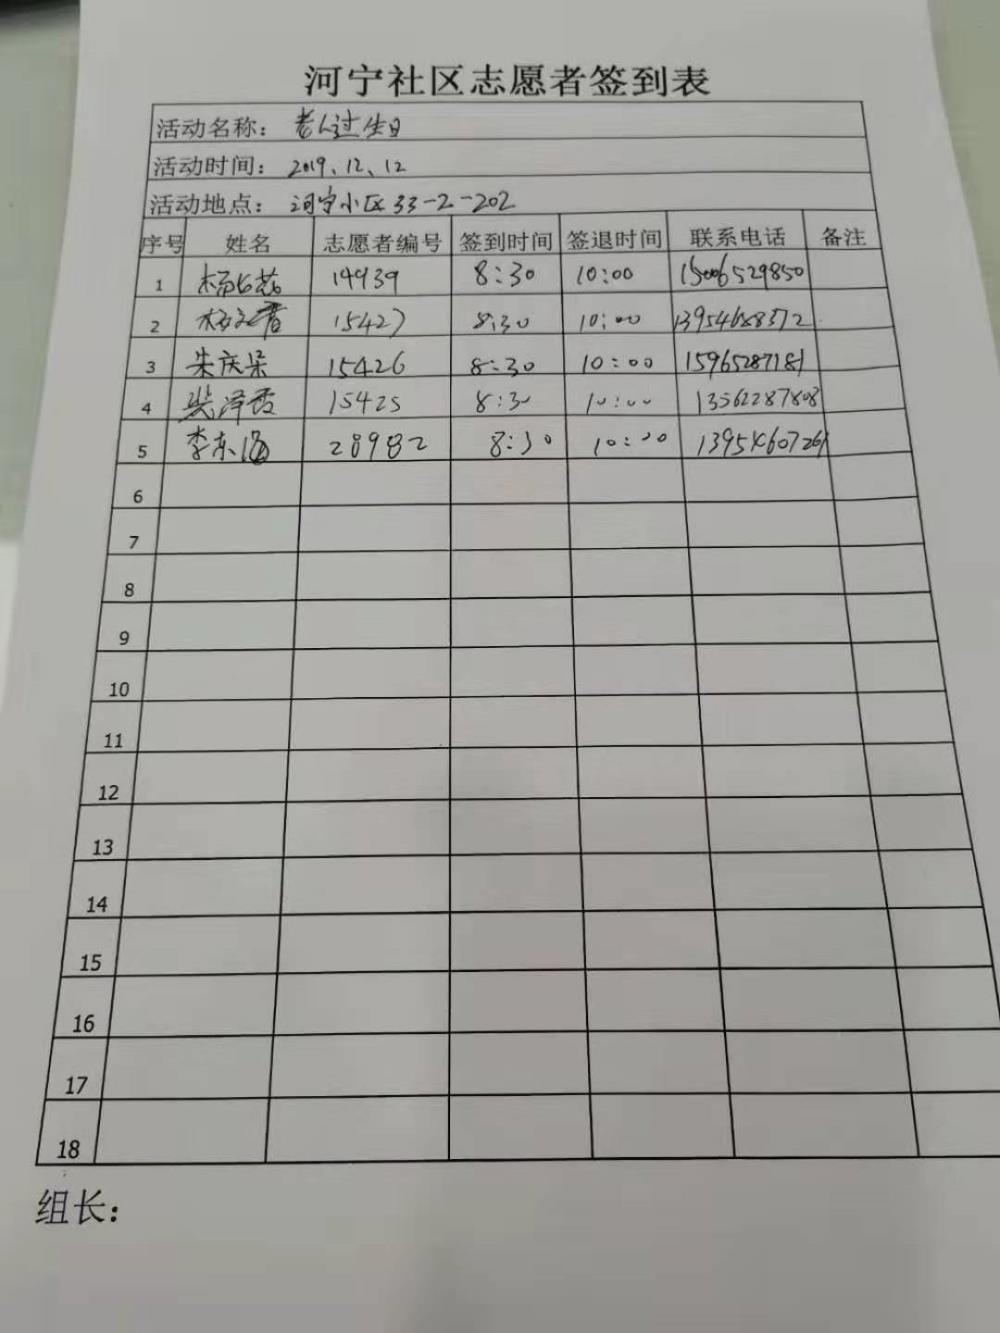 河宁社区志愿者签到表
活动名称： 老人过生日
活动时间： 2019、12、12
活动地点： 河宁小区33-2-202
序号 姓名 志愿者编号 签到时间 签退时间 联系电话 备注
1 14939 8:30 10:00 15006529850
2 15427 8:30 10:00 13954688372
3 朱庆呆 15426 8:30 10:00 15965287181
4 柴泽香 15425 8:30 10:00 13562287808
5 李东海 28982 8:30 10:30
6
7
8
9
10
11
12
13
14
15
16
17
18
组长：